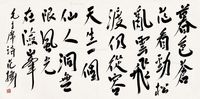 暮色苍
茫看劲松
乱云飞
渡仍从容
天生一个
仙人洞无
限风光
在险峰
毛主席诗